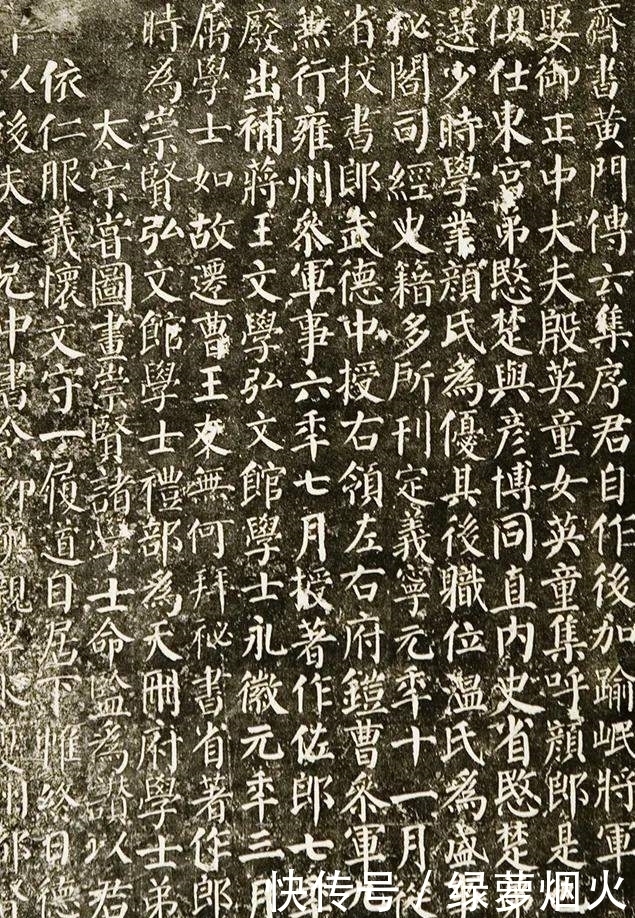 齊書黃門傳云集序君自作後加踰岷將軍
娶御正中大夫殷英童女英童集呼顏郎是
俱仕東宮弟愍楚與彥博同直內史省愍楚
選少時學業顏氏為優其後職位溫氏為盛
秘閣司經史籍多所刊定義寧元年十一月從
省挍書郎武德中授右領左右府鎧曹參軍九
無行雍州參軍事六年七月授著作佐郎七年
廢出補蔣王文學弘文館學士永徽元年三月
属學士如故遷曹王友無何拜秘書省著作郎
時為崇賢弘文館學士禮部為天冊府學士弟
太宗甞圖畫崇賢諸學士命監為讚以君
依仁服義懷文守一履道自居下帷終日德
以後夫人兄中書令柳奭親
快传号 / 绿萝烟火